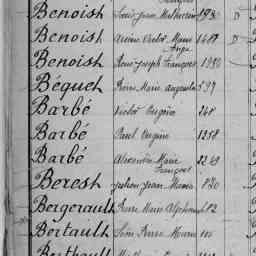 François
Benoist Louis Jean Mathurin 1980 D
Benoist Victor Marie
Ange
Benoist Joseph François 1950
Béguet Pierre Marie Auguste 597
Barbé Victor Eugène 248
Barbé Paul Eugène 1258
Barbé Alexandre Marie
François
Berest Julien Jean Marie
Bergerault Pierre Marie Alphonse
Bertault Pierre Marie
Berthault